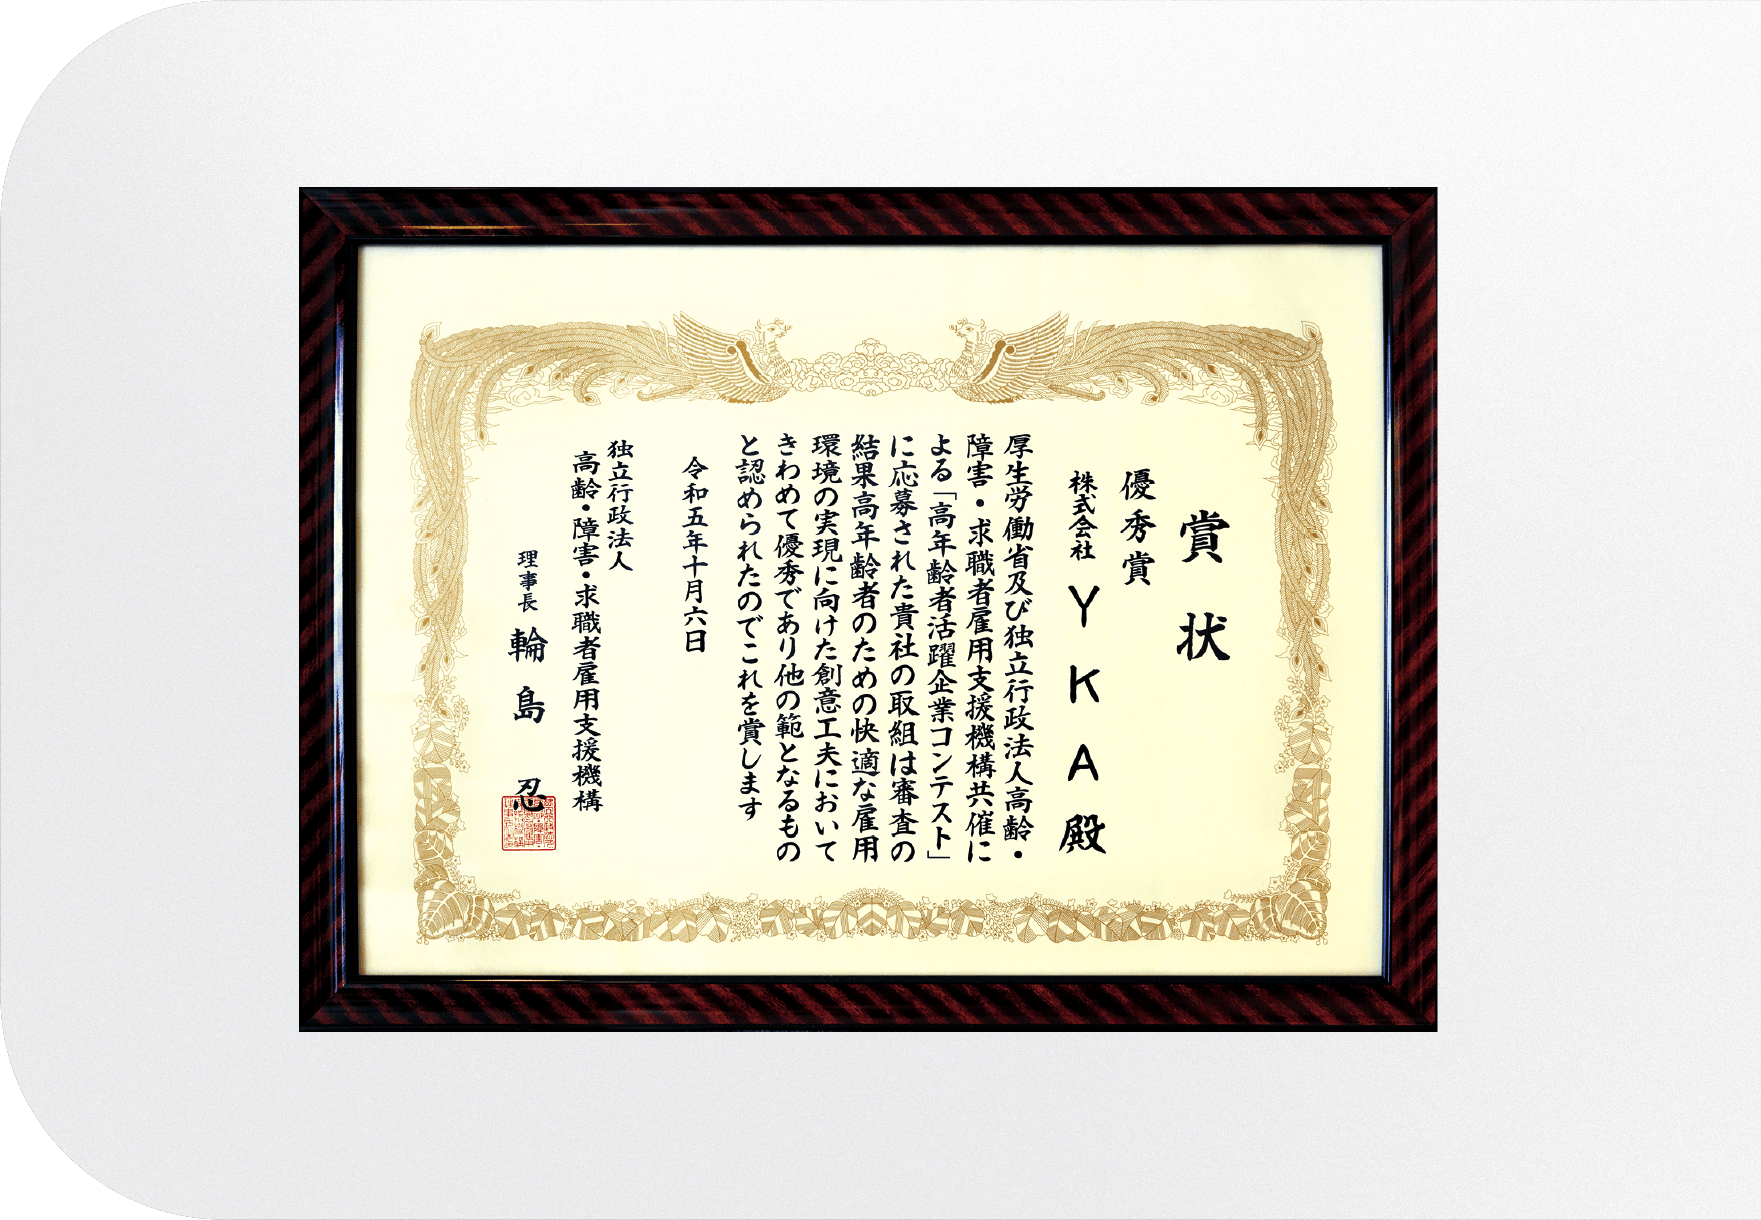 賞状
優秀賞
株式会社YKA殿
厚生労働省及び独立行政法人高齢・
障害・求職者雇用支援機構共催に
よる「高年齢者活躍企業コンテスト」
に応募された貴社の取組は審査の
結果高年齢者のための快適な雇用
環境の実現に向けた創意工夫において
きわめて優秀であり他の範となるもの
と認められたのでこれを賞します
令和五年十月六日
独立行政法人
高齢・障害・求職者雇用支援機構
理事長 輪島 忍